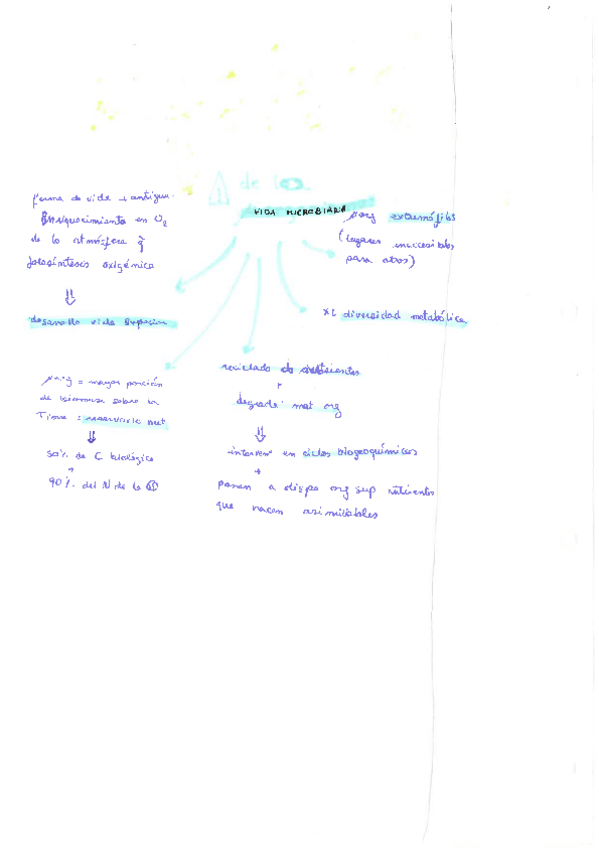 VIDA MICROBIANA
forma de vida + antigua.
Enriquecimiento en O2
de la atmósfera q̂
fotosíntesis oxigénica
⇓
desarrollo vida superior
µorg extremófilos
(lugares inaccesibles
para otros)
XL diversidad metabólica
µorg = mayor porción
de biomasa sobre la
Tierra = reservorio nut
⇓
50% de C biológico
+
90% del N de la
reciclado de nutrientes
+
degrada mat org
⇓
intervien en ciclos biogeoquímicos
+
ponen a dispo org sup nutrientes
que hacen asimilables